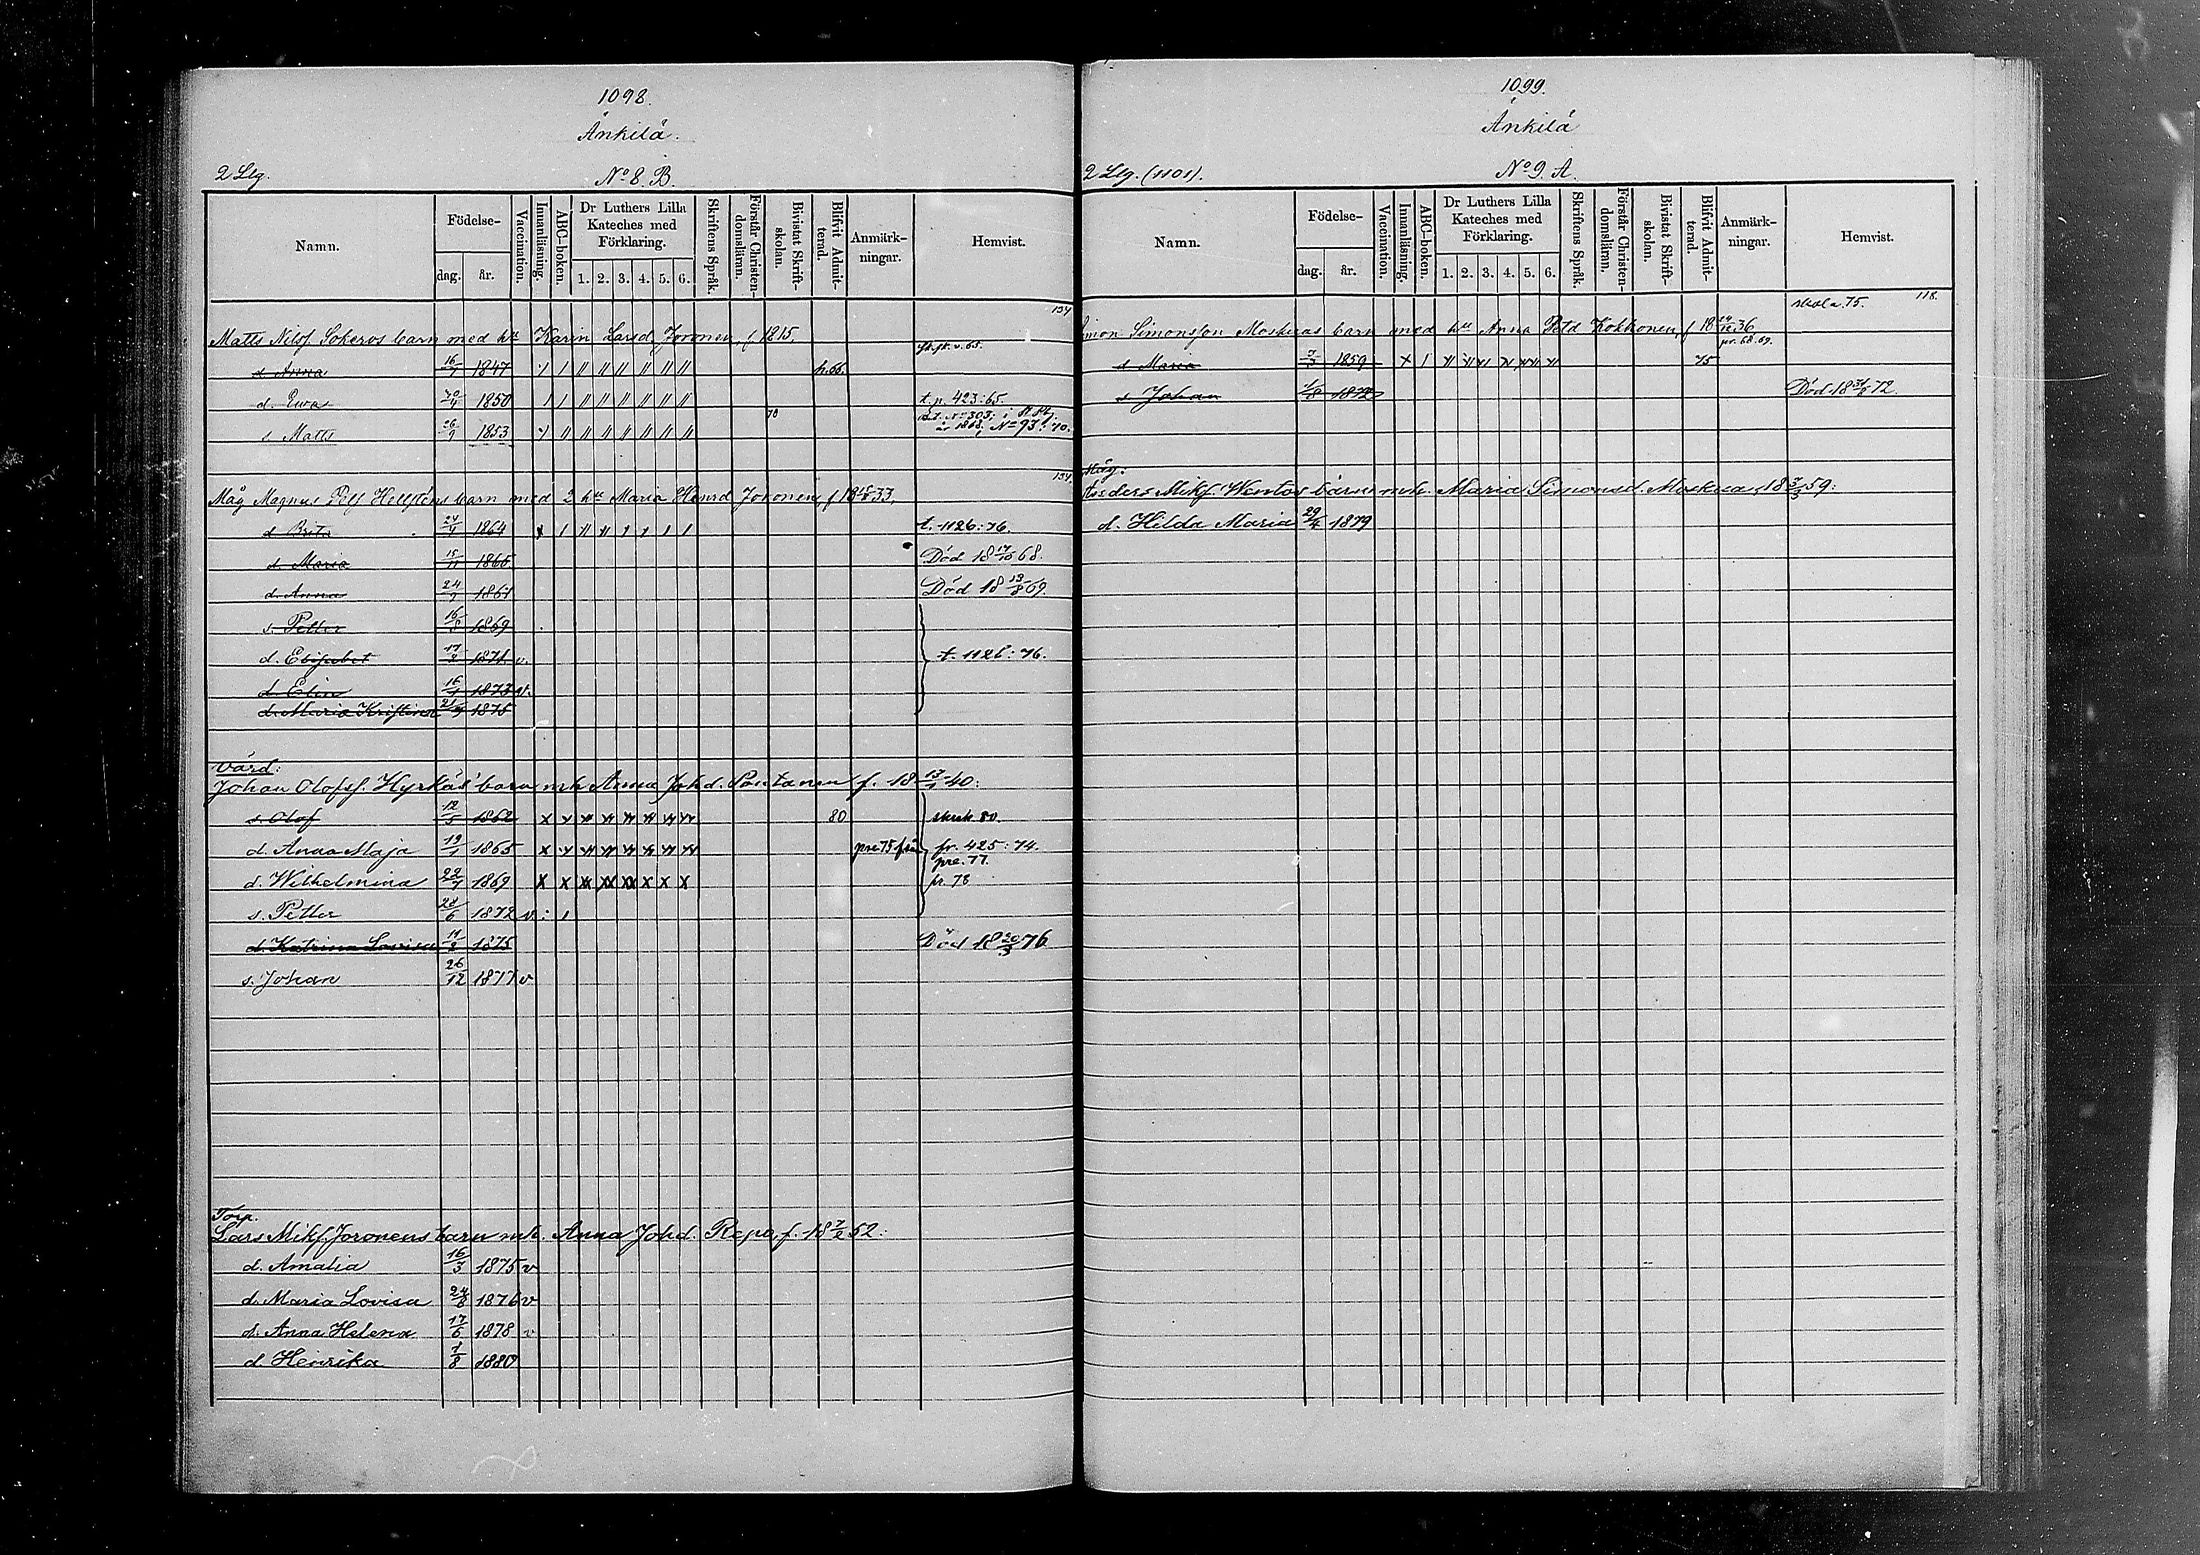 1098.
Änkilä.
2 Llg. No 8. B.
Namn. Födelse- dag. år. Vaccination. Innanläsning. ABC-boken. Dr Luthers Lilla Kateches med Förklaring. 1. 2. 3. 4. 5. 6. Skriftens Språk. Förstår Christendomsläran. Bivistat Skriftskolan. Blifvit Admitterad. Anmärkningar. Hemvist.
134
Matts Nilsf. Sokeros barn med hu Karin Larsd Joronen f 1815.
d. Anna 16/7 1847 h.66.
d. Ewa 1850 t.p. 423:65.
s. Matts 26/9 1853 70 år 1868, No 93: 70.
134
Måg Magnus Hellsténs barn med 2 hu Maria Henrd Joronen, f 18 33.
d. Brita 24/4 1864 t. 1126:76.
d. Maria 15/11 1865 Död 18 17/10 68.
d. Anna 24/9 1867 Död 18 13/8 69.
s. Petter 16/8 1869
d. Elisabet 17/2 1871 v. t. 1126:76.
d. Elin 16/1 1873 v.
d. Maria Kristina 21/9 1875
Värd:
Johan Olofsf. Hyrkäs' barn mh Anna Johd. Poutanen f. 18 13/1 40:
s. Olof 12/5 1862 80 80
d. Anna Maja 19/1 1865 pre 75 från fr. 425:74.
pre. 77.
d. Wilhelmina 22/7 1869 pr. 78
s. Petter 28/6 1872 v
d. Katrina Lovisa 11/2 1875 Död 18 20/3 76
s. Johan 26/12 1877 v
Torp.
Lars Mikf. Joronens barn mh. Anna Johd. Repo, f. 18 7/2 52:
d. Amalia 16/3 1875 v
d. Maria Lovisa 24/8 1876 v
d. Anna Helena 17/6 1878 v
d. Henrika 1/8 1880
1099.
Änkilä
2 Llg. (1101). No 9. A.
Namn. Födelse- dag. år. Vaccination. Innanläsning. ABC-boken. Dr Luthers Lilla Kateches med Förklaring. 1. 2. 3. 4. 5. 6. Skriftens Språk. Förstår Christendomsläran. Bivistat Skriftskolan. Blifvit Admitterad. Anmärkningar. Hemvist.
skola. 75. 118.
Simon Simonsson Moskuas barn med hu Anna Petd Kokkonen, f 18 24/12 36
pr. 68.69.
d. Maria 7/3 1859 75
s. Johan 1/8 1872 Död 18 31/8 72.
Måg:
Anders Mikf. Wentos barn mh. Maria Simonsd. Moskua 18 7/3 59:
d. Hilda Maria 29/4 1879